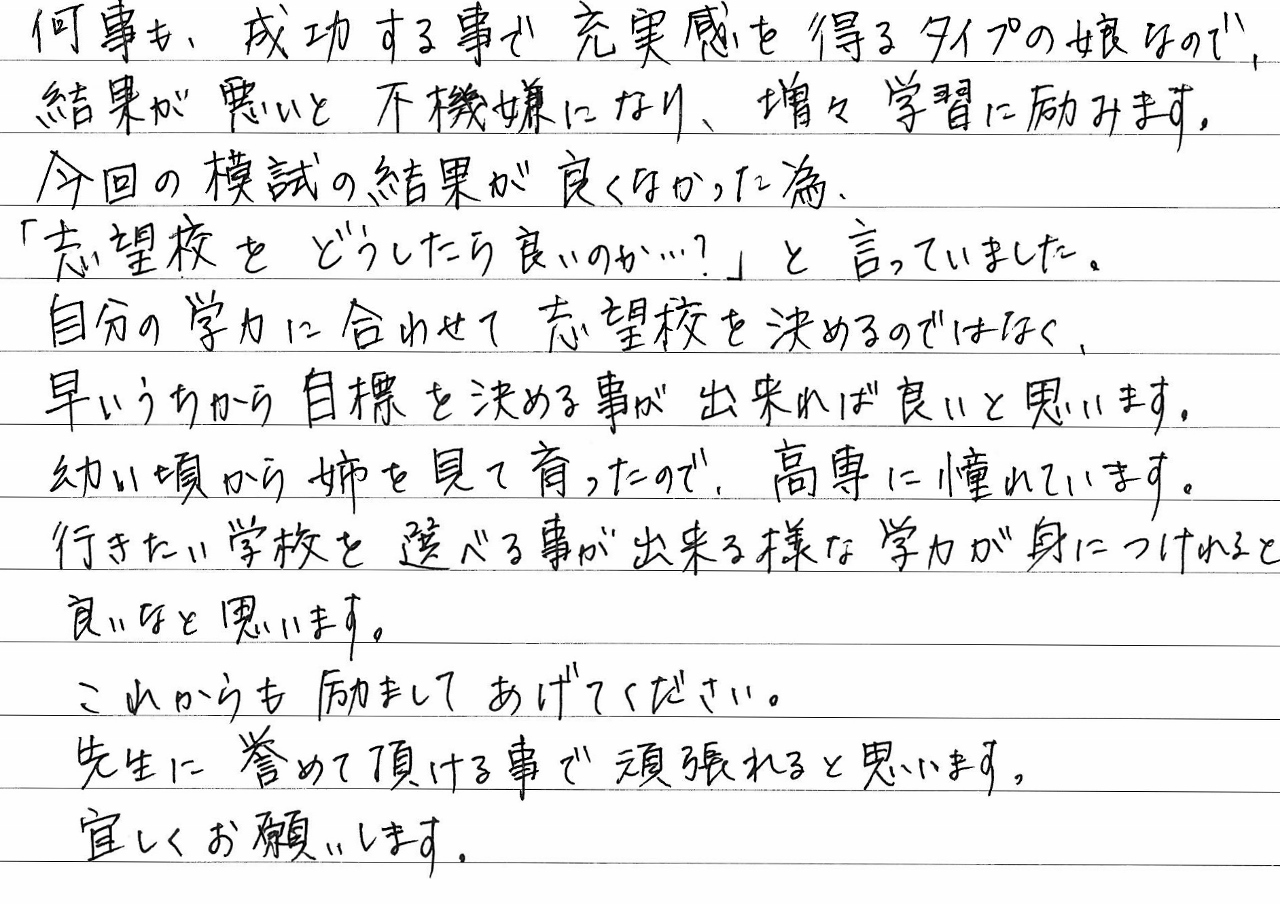 何事も、成功する事で充実感を得るタイプの娘なので、
結果が悪いと不機嫌になり、増々学習に励みます。
今回の模試の結果が良くなかった為、
「志望校をどうしたら良いのか…?」と言っていました。
自分の学力に合わせて志望校を決めるのではなく、
早いうちから目標を決める事が出来れば良いと思います。
幼い頃から姉を見て育ったので、高専に憧れています。
行きたい学校を選べる事が出来る様な学力が身につけれると
良いなと思います。
これからも励ましてあげてください。
先生に誉めて頂ける事で頑張れると思います。
宜しくお願いします。